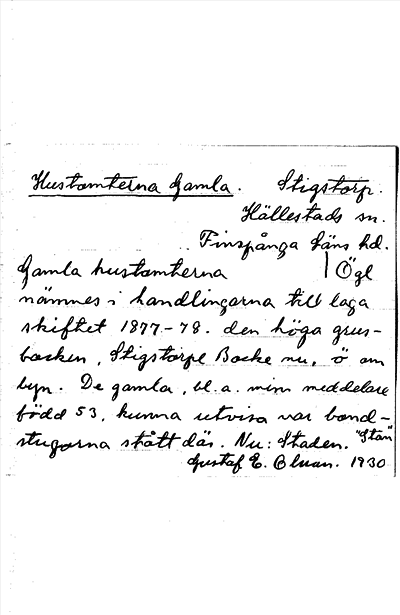 Hustomterna Gamla. Stigstorp.
Hällestads sn.
Finspånga läns hd.
Gamla hustomterna | Ögl
nämnes i handlingarna till laga
skiftet 1877-78. den höga grus-
backen, Stigstorpe Backe nu, ö om
byn. De gamla, bl.a. min meddelare
född 53, kunna utvisa var bond-
stugorna stått där. Nu: Staden. "Stan"
Gustaf E. 1930